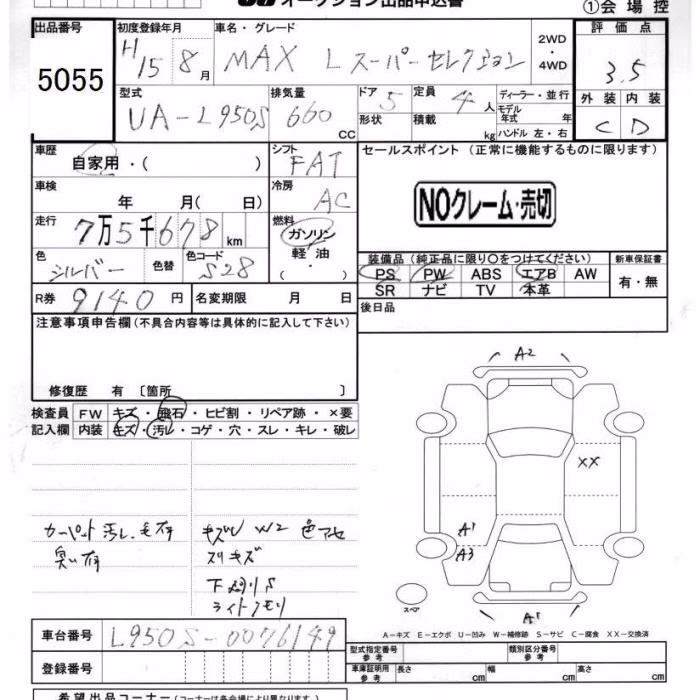 オークション出品申込書
①会場控
出品番号
5055
初度登録年月
H15 8月
車名・グレード
MAX L スーパーセレクション
2WD
・
4WD
評価点
3.5
外装 内装
C D
型式
UA-L950S
排気量
660 CC
ドア 5
形状
定員 4人
積載 kg
ディーラー・並行
モデル年式 年
ハンドル 左・右
車歴
自家用・( )
シフト
FAT
車検
年 月( 日)
冷房
AC
走行
7万5千678km
燃料
ガソリン
軽油
・( )
色
シルバー
色替
色コード
S28
R券 9140円
名変期限 月 日
セールスポイント (正常に機能するものに限ります)
NOクレーム・売切
装備品(純正品に限り○をつけてください)
PS PW ABS エアB AW
SR ナビ TV 本革
新車保証書
有・無
後日品
注意事項申告欄(不具合内容等は具体的に記入して下さい)
修復歴 有 〔箇所 〕
検査員 FW キズ・飛石・ヒビ割・リペア跡・×要
記入欄 内装 キズ・汚レ・コゲ・穴・スレ・キレ・破レ
カーペット汚レ、毛有
臭い有
キズU W2 色アセ
スリキズ
下廻りS
ライトクモリ
A2
XX
A1
A3
A1
スペア
A-キズ E-エクボ U-凹み W-補修跡 S-サビ C-腐食 XX-交換済
車台番号 L950S-0076149
登録番号
型式指定番号 参考
類別区分番号 参考
車庫証明用 参考 長さ cm 幅 cm 高さ cm
希望出品コーナー(コーナーは各会場により異なります)